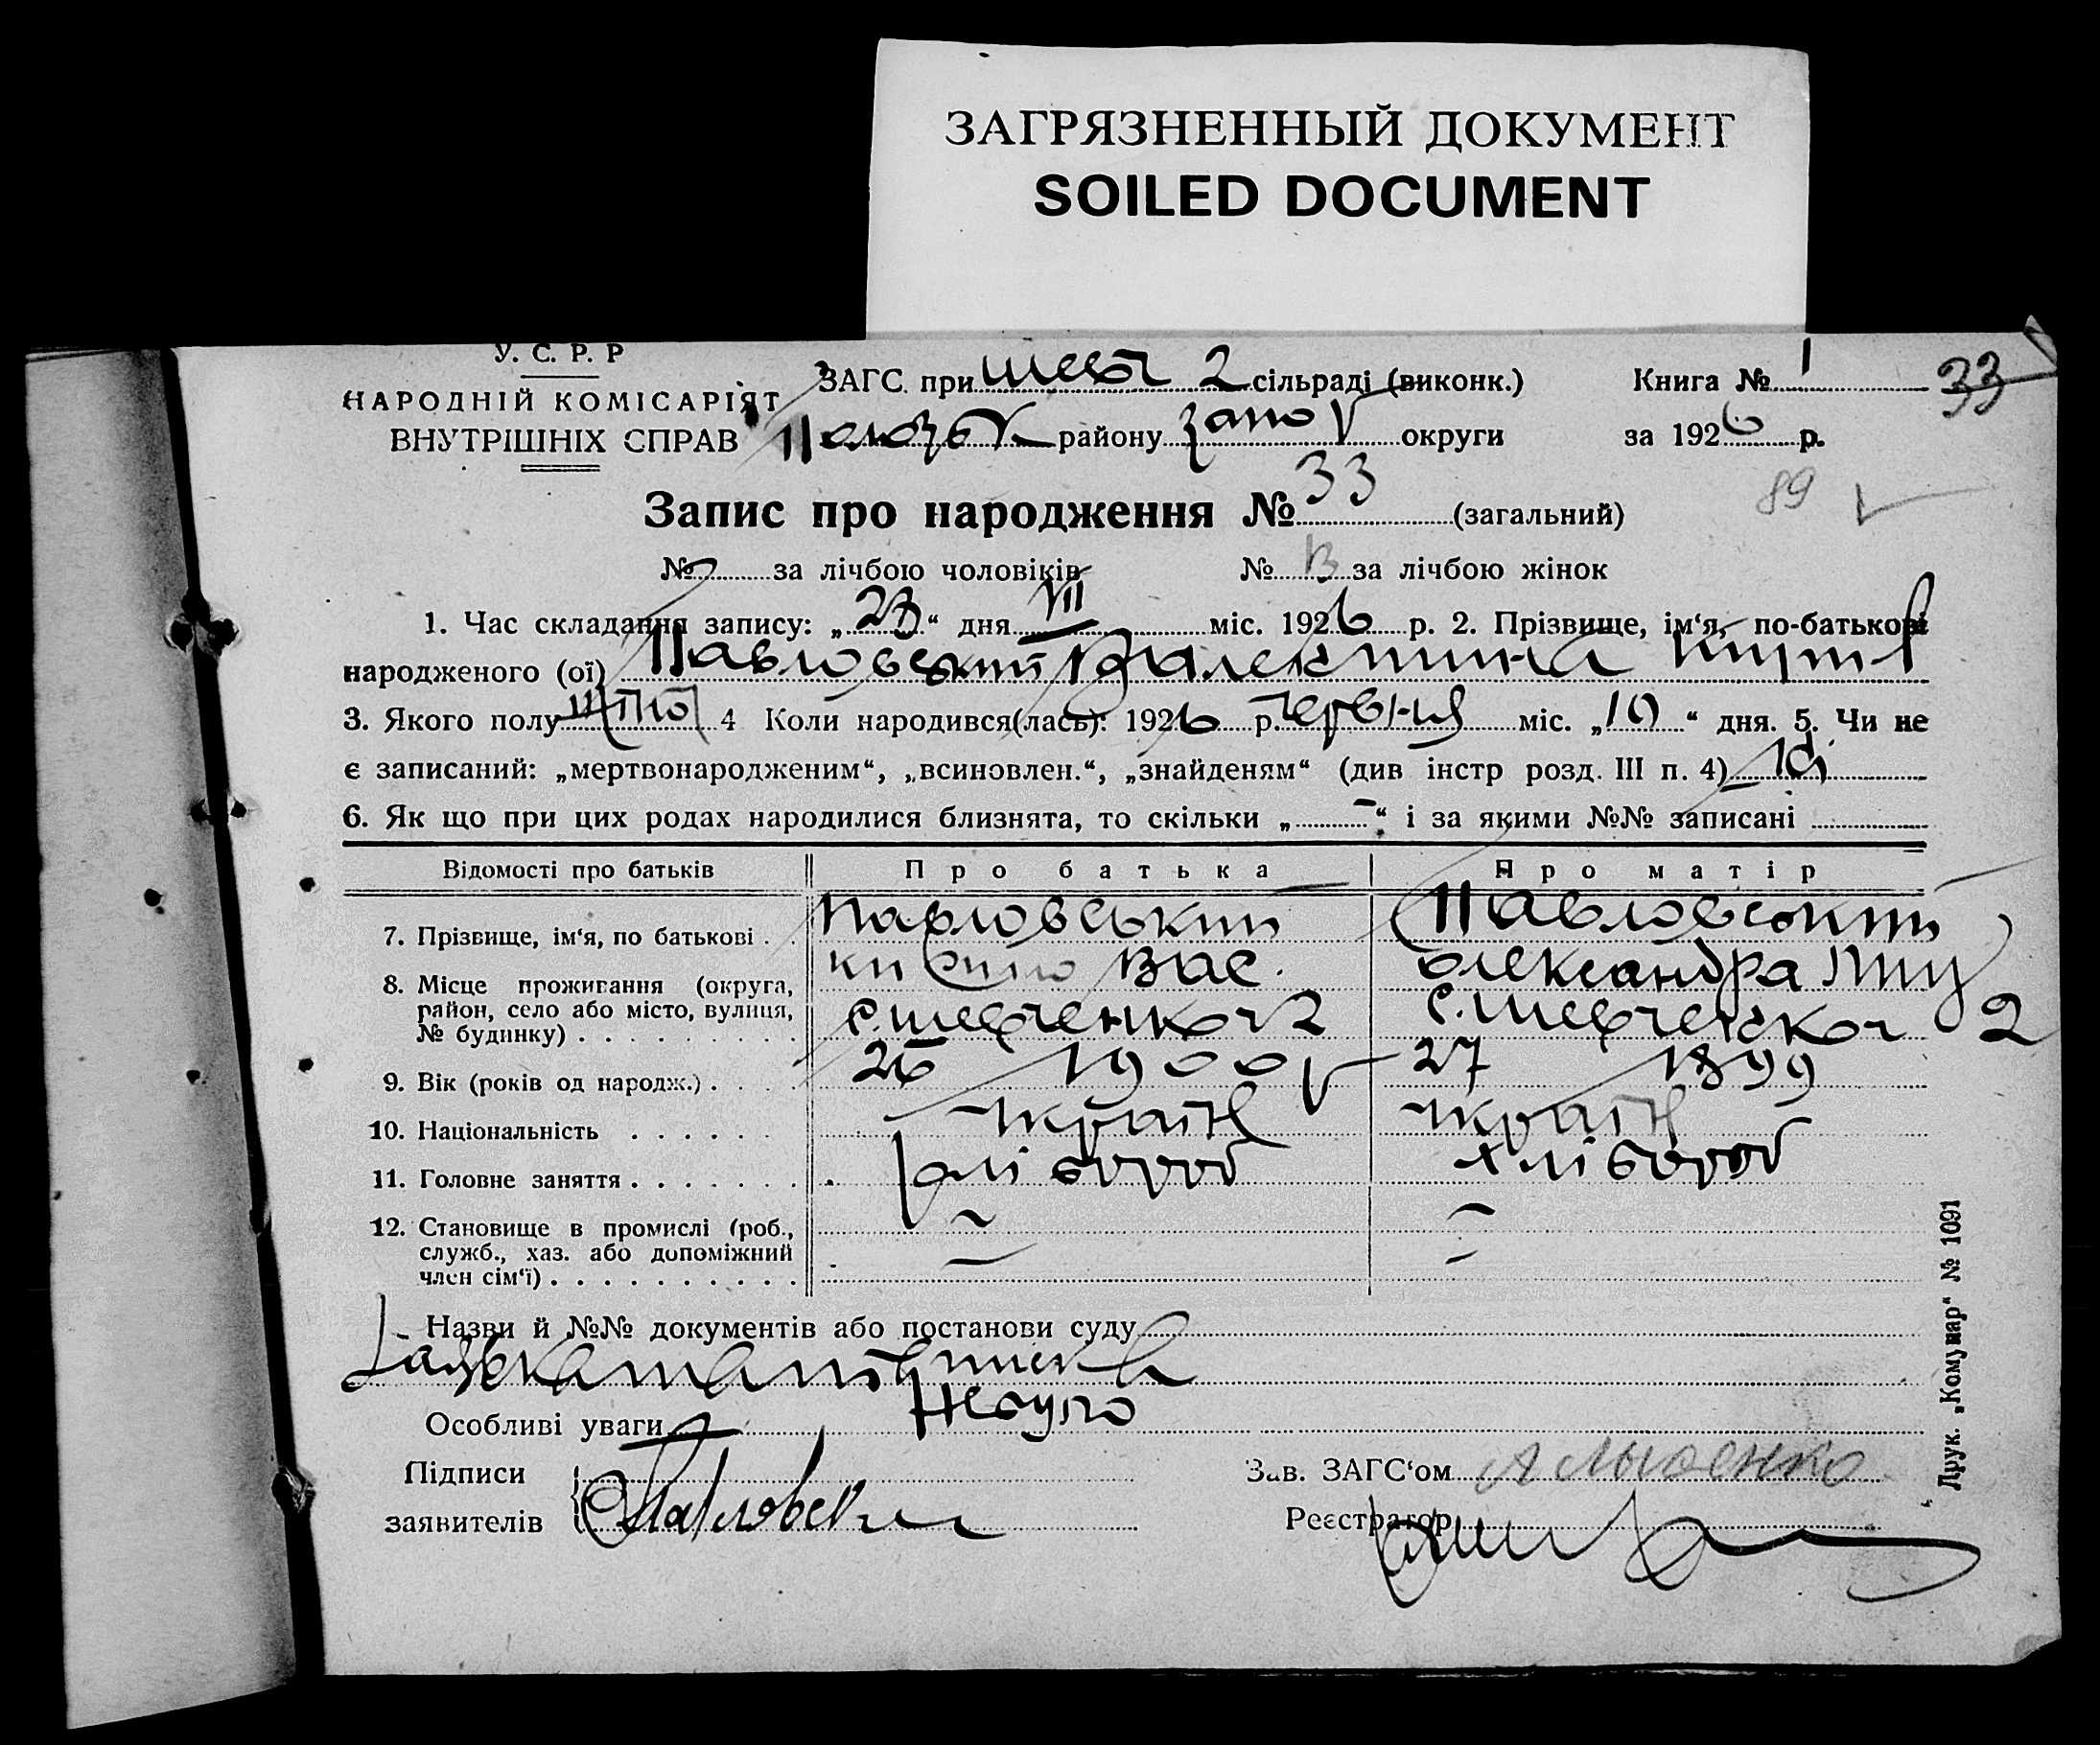 ЗАГРЯЗНЕННЫЙ ДОКУМЕНТ
SOILED DOCUMENT
У. С. Р. Р
НАРОДНІЙ КОМІСАРІЯТ
ВНУТРІШНІХ СПРАВ
ЗАГС. при Шевч 2 сільраді (виконк.)
Книга № 1
33
району Запо округи
за 1926 р.
Запис про народження № 33 (загальний)
89
№ за лічбою чоловіків № 13 за лічбою жінок
1. Час складання запису: „23“ дня VII міс. 1926 р. 2. Прізвище, ім‘я, по-батькові
народженого (ої) Павловський Валектина
3. Якого полу 4 Коли народився(лась): 1926 р. червня міс. „10“ дня. 5. Чи не
є записаний: „мертвонародженим“, „всиновлен.“, „знайденям“ (див інстр розд. III п. 4)
6. Як що при цих родах народилися близнята, то скільки „–“ і за якими №№ записані
Відомості про батьків Про батька Про матір
7. Прізвище, ім‘я, по батькові . . Павловський Вас. Павловський Олександра
8. Місце проживання (округа, район, село або місто, вулиця, № будинку) . . . . . . . . . с. Шевченкої 2 с. Шевченкої 2
9. Вік (років од народж.) . . . . 26 1900 27 1899
10. Національність . . . . . . Україн Україн
11. Головне заняття . . . . . . . хлібороб хлібороб
12. Становище в промислі (роб., служб., хаз. або допоміжний член сім‘ї) . . . . . . . . . . – –
Назви й №№ документів або постанови суду
Особливі уваги
Підписи
заявителів Павловски
Зав. ЗАГС‘ом
Реєстратор
Друк. „Комунар“ № 1091